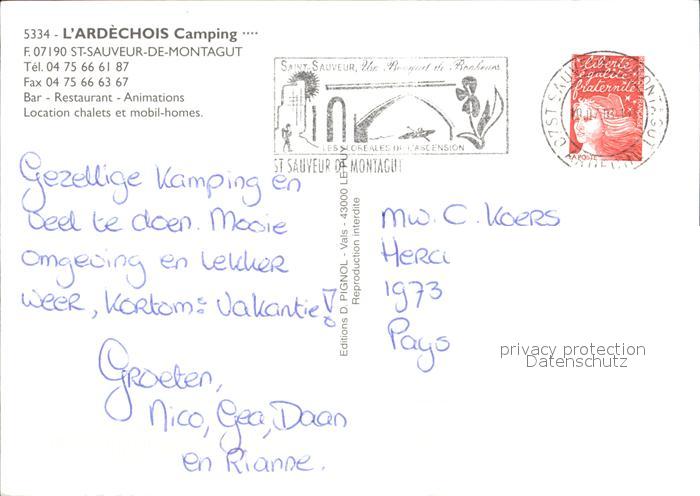 5334 - L'ARDÈCHOIS Camping ····
F. 07190 ST-SAUVEUR-DE-MONTAGUT
Tél. 04 75 66 61 87
Fax 04 75 66 63 67
Bar - Restaurant - Animations
Location chalets et mobil-homes.
SAINT-SAUVEUR, Un Bouquet de Bonheurs
LES FLOREALES DE L'ASCENSION
ST SAUVEUR DE MONTAGUT
liberté
égalité
fraternité
LA POSTE
Gezellige Kamping en
veel te doen. Mooie
omgeving en lekker
weer, kortom: vakantie!
Groeten,
Nico, Gea, Daan
en Rianne.
Editions D. PIGNOL - Vals - 43000 LE PUY
Reproduction interdite
Mw. C. Koers
Herci
1973
Pays
privacy protection
Datenschutz